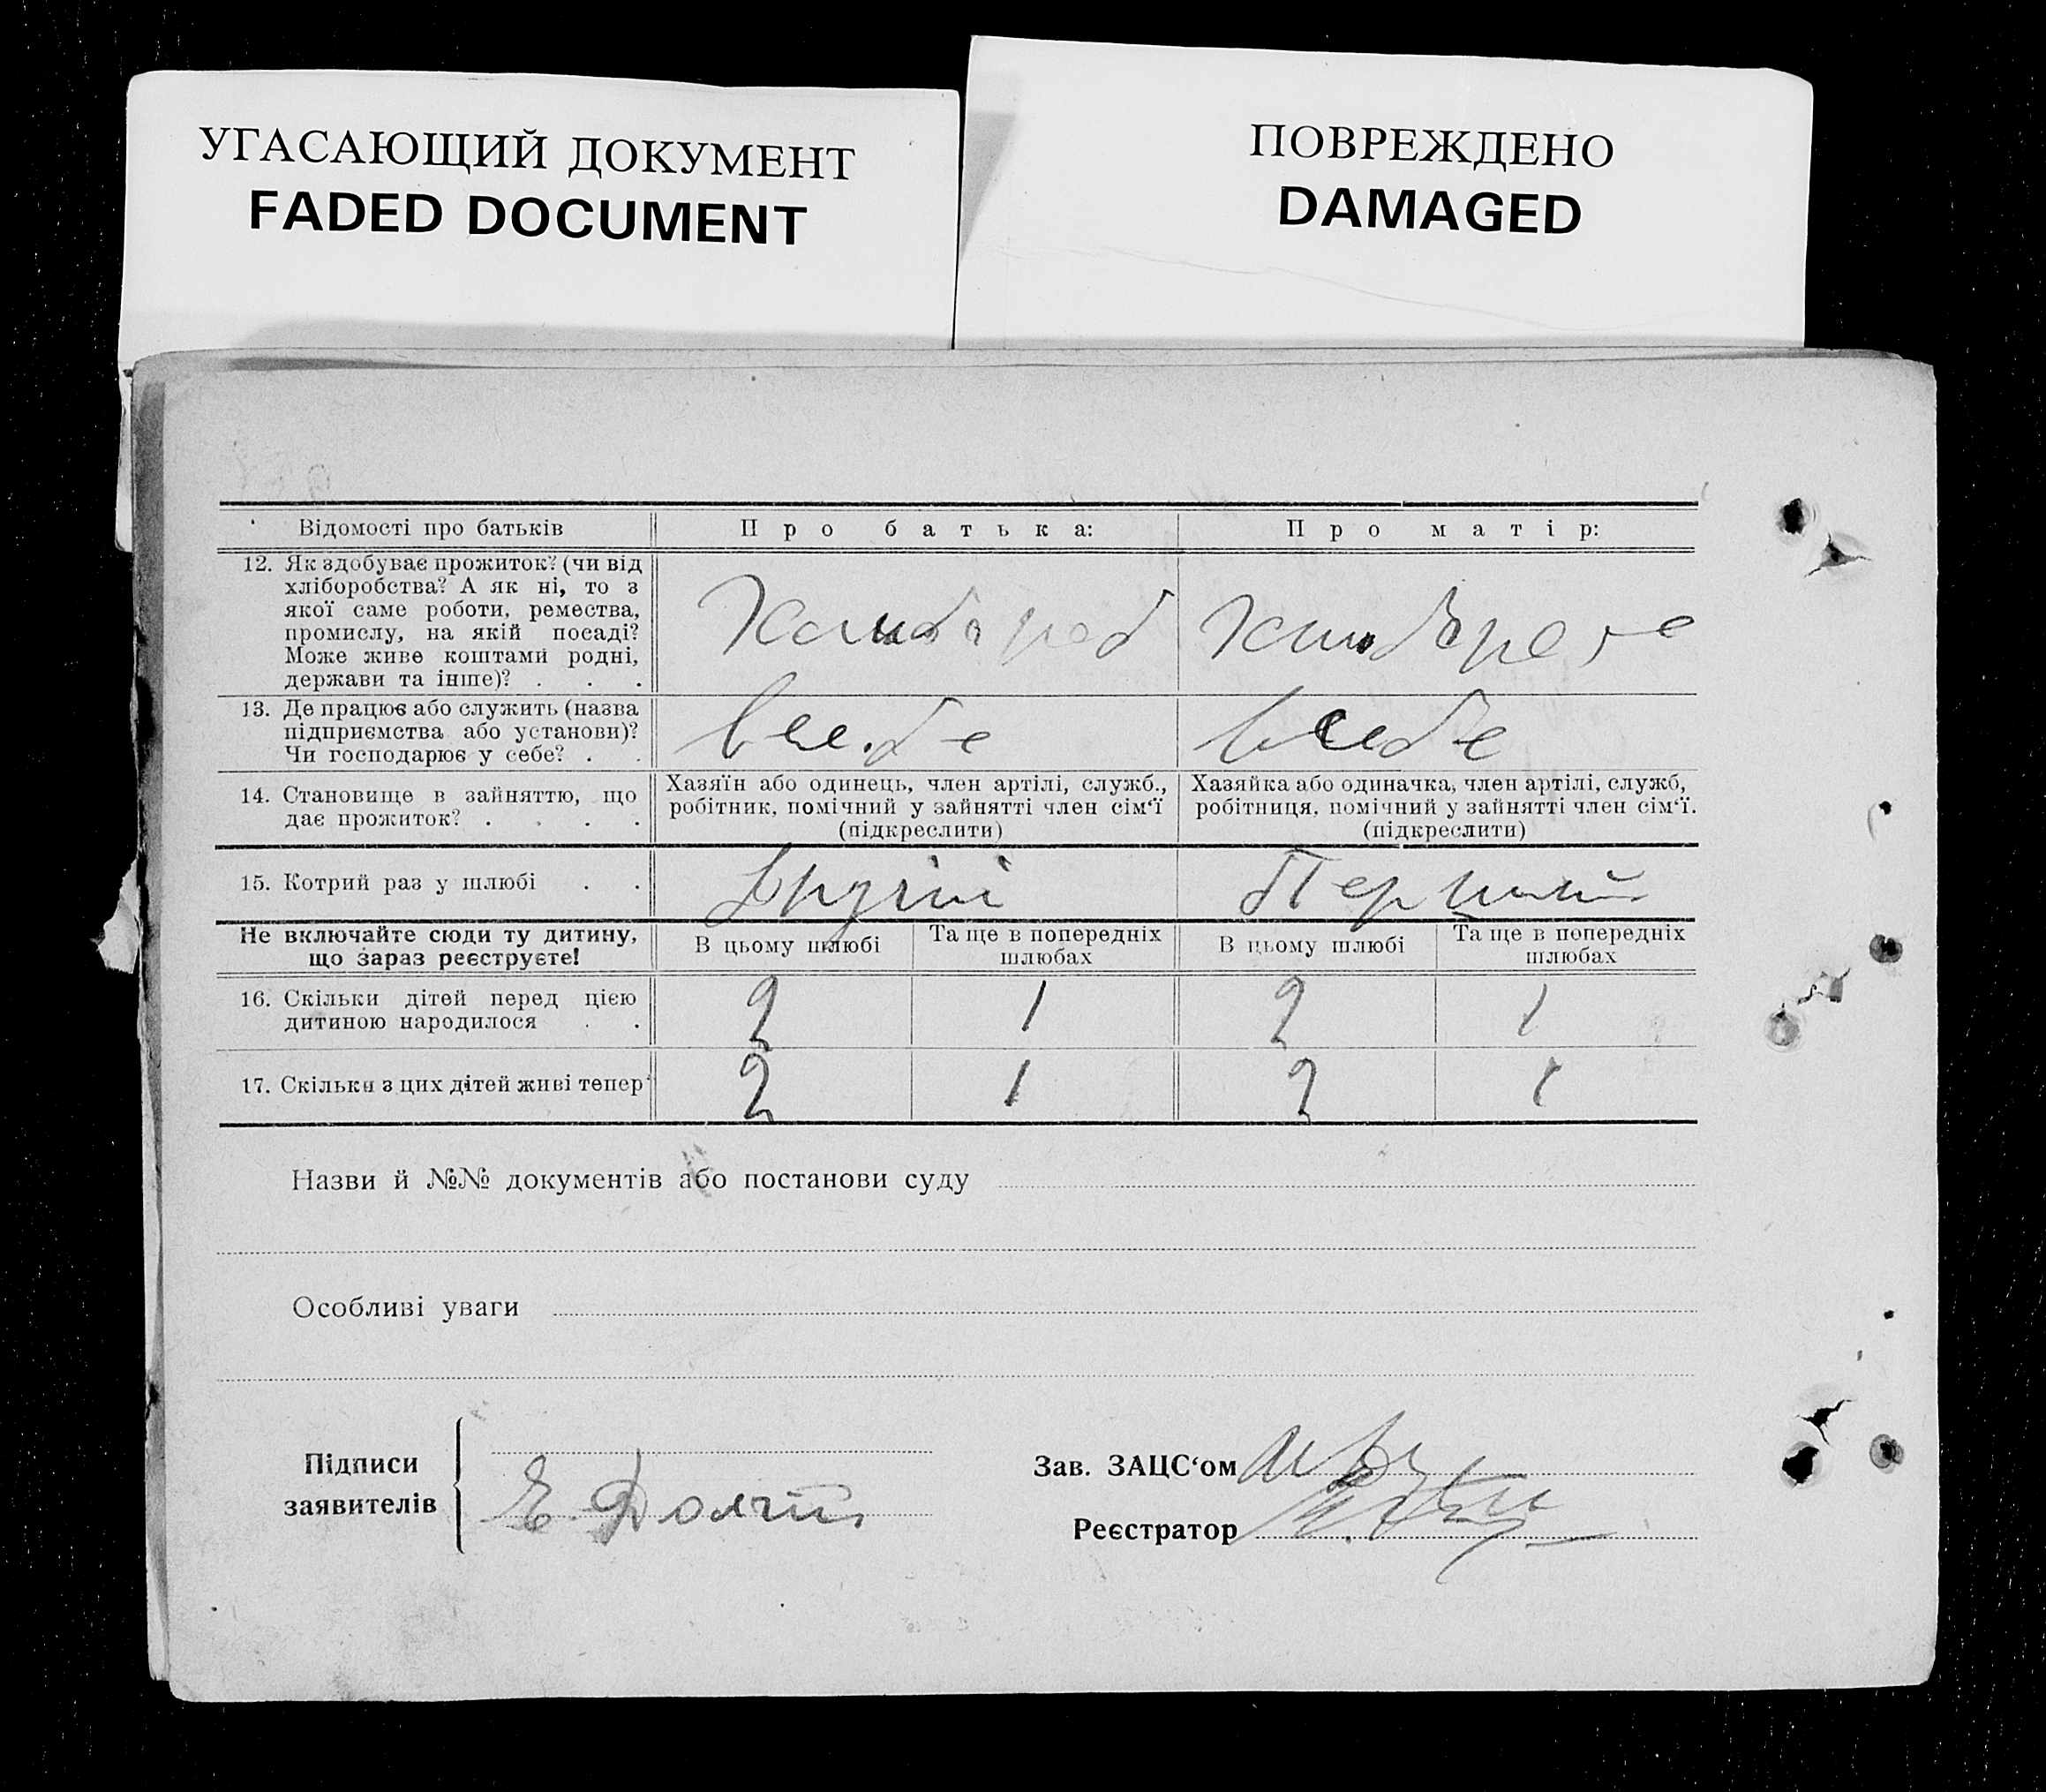 УГАСАЮЩИЙ ДОКУМЕНТ
FADED DOCUMENT
ПОВРЕЖДЕНО
DAMAGED
Відомості про батьків
Про батька:
Про матір:
12. Як здобуває прожиток? (чи від
хліборобства? А як ні, то з
якої саме роботи, ремества,
промислу, на якій посаді?
Може живе коштами родні,
держави та інше)? . . .
13. Де працює або служить (назва
підприємства або установи)?
Чи господарює у себе? . .
в себе
14. Становище в зайняттю, що
дає прожиток? . . . .
Хазяїн або одинець, член артілі, служб.,
робітник, помічний у зайнятті член сім‘ї
(підкреслити)
Хазяйка або одиначка, член артілі, служб,
робітниця, помічний у зайнятті член сім‘ї.
(підкреслити)
15. Котрий раз у шлюбі . .
Другий
Перший
Не включайте сюди ту дитину,
що зараз реєструєте!
В цьому шлюбі
Та ще в попередніх
шлюбах
В цьому шлюбі
Та ще в попередніх
шлюбах
16. Скільки дітей перед цією
дитиною народилося . .
2
1
2
1
17. Скільки з цих дітей живі тепер
2
1
2
1
Назви й №№ документів або постанови суду
Особливі уваги
Підписи
заявителів
Зав. ЗАЦС‘ом
Реєстратор